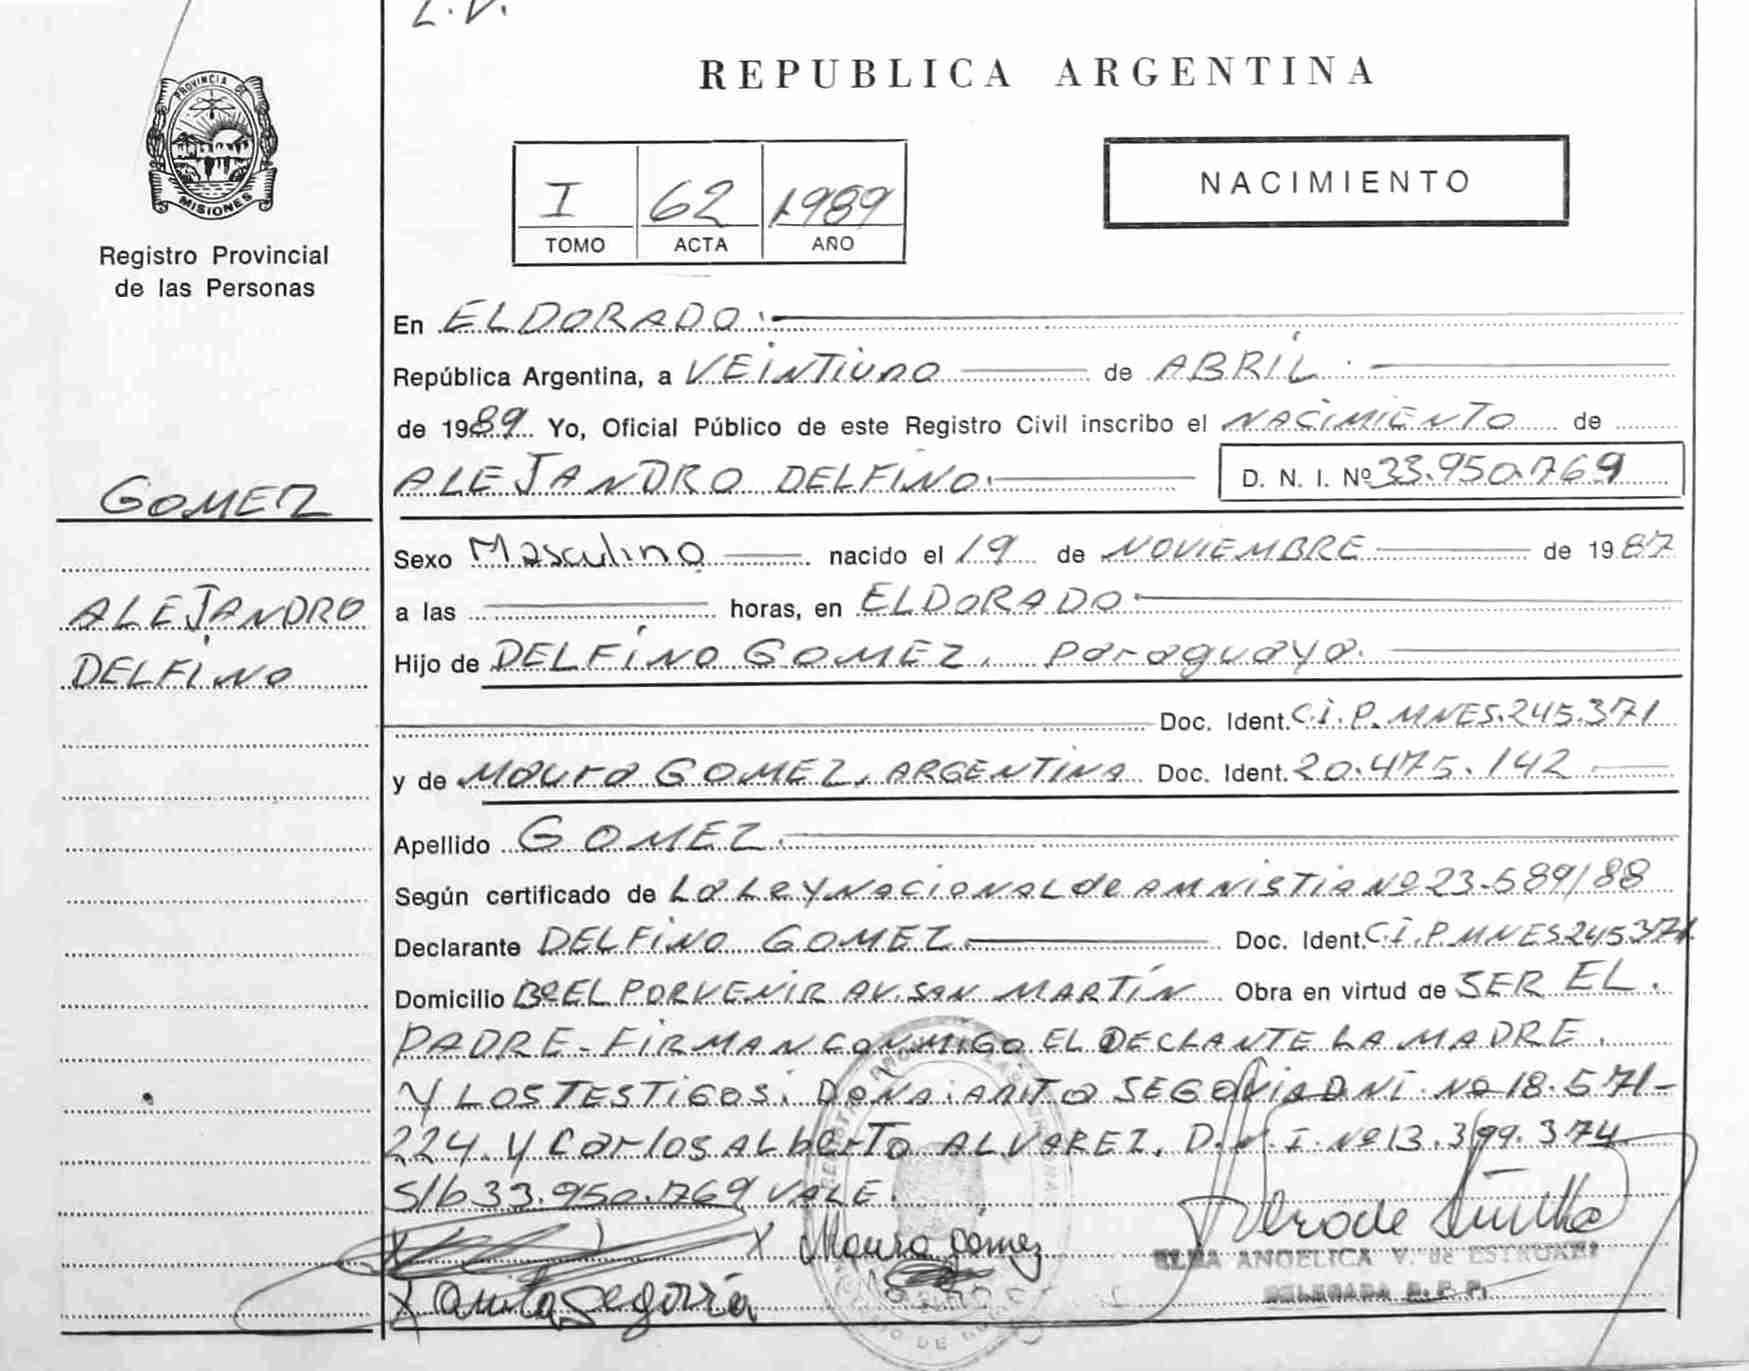 L.V.
PROVINCIA DE
MISIONES
Registro Provincial
de las Personas
REPUBLICA ARGENTINA
I 62 1989
TOMO ACTA AÑO
NACIMIENTO
En ELDORADO.
República Argentina, a VEINTIUNO de ABRIL.
de 1989. Yo, Oficial Público de este Registro Civil inscribo el NACIMIENTO de
GOMEZ
ALEJANDRO DELFINO. D. N. I. Nº 33.950.769
Sexo Masculino nacido el 19 de NOVIEMBRE de 1987
ALEJANDRO
a las horas, en ELDORADO.
DELFINO
Hijo de DELFINO GOMEZ, Paraguayo.
Doc. Ident. C.I.P. MNES.245.371
y de Maura GOMEZ, ARGENTINA Doc. Ident. 20.475.142
Apellido GOMEZ.
Según certificado de La Ley NACIONAL de AMNISTIA Nº 23.589/88
Declarante DELFINO GOMEZ. Doc. Ident. C.I.P. MNES245371
Domicilio Bº EL PORVENIR AV. SAN MARTÍN Obra en virtud de SER EL
PADRE - FIRMAN CONMIGO EL DECLANTE LA MADRE
Y LOS TESTIGOS: DONA: ANITA SEGOVIA DNI. Nº 18.571-
224. Y Carlos ALberTo ALVAREZ, D.N.I. Nº 13.399.374
S/b 33.950.769 VALE.
X X Maura Gómez
X Anita Segovia
ELBA ANGELICA V. de
DELEGADA R.P.P.